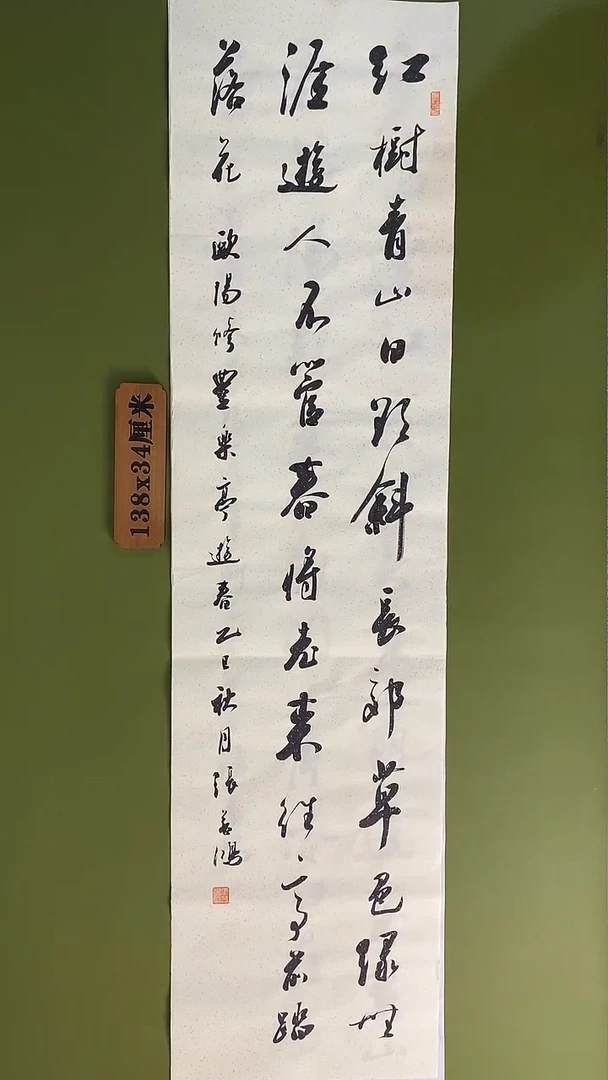 紅樹青山日欲斜長郊草色綠無
涯遊人不管春將老來往亭前踏
落花 歐陽修豐樂亭遊春乙巳秋月張善鴻
138x34厘米